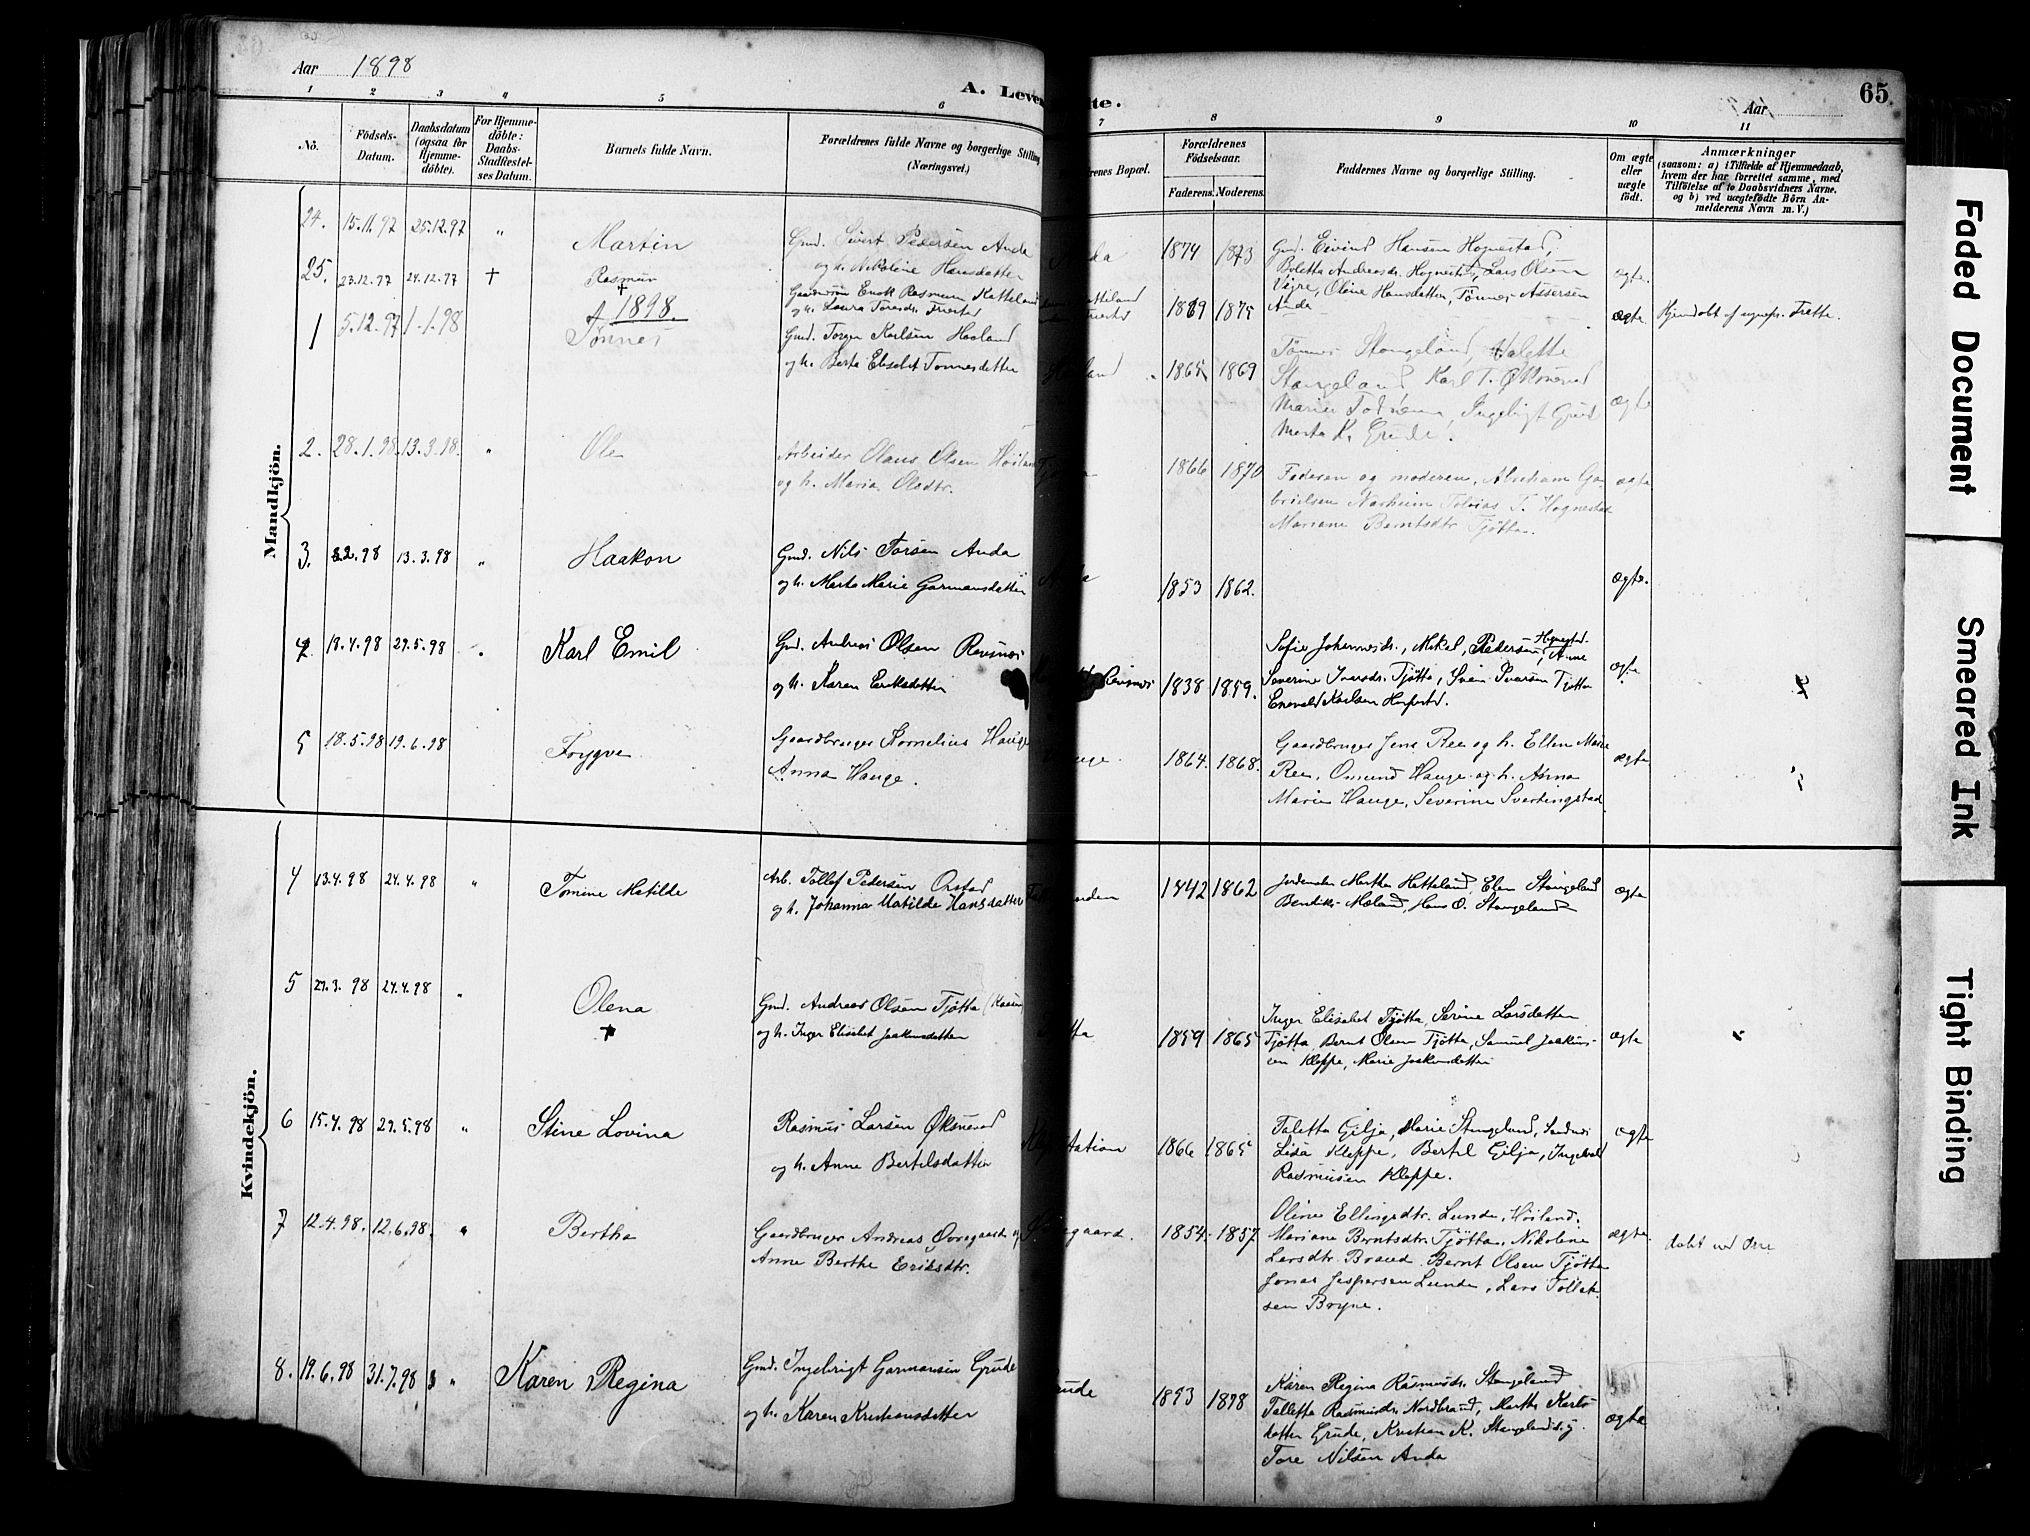 Aar 1898
A. Leven
te.
Aar
65
1 2 3 4 5 6 7 8 9 10 11
Nö.
Födsels-
Datum.
Daabsdatum
(ogsaa for
Hjemme-
döbte).
For Hjemme-
döbte:
Daabs-
Stadfæstel-
ses Datum.
Barnets fulde Navn.
Forældrenes fulde Navne og borgerlige Stilling
(Næringsvei.)
renes Bopæl.
Forældrenes
Födselsaar.
Faderens. Moderens.
Faddernes Navne og borgerlige Stilling.
Om ægte
eller
uægte
födt.
Anmærkninger
(saasom: a) i Tilfælde af Hjemmedaab,
hvem der har forrettet samme, med
Tilföielse af to Daabsvidners Navne.
og b) ved uægtefödte Börn An-
melderens Navn m. V.)
Mandkjön.
24. 15.11.97 25.12.97 " Martin
Gmd. Sivert Pedersen Anda
og h. Nikoline Hansdatter
da 1874 1873
Gmd. Eivind Hansen Hognestad,
Boletta Andreasdr. Hognestad, Lars Olsen
Vigre, Oline Hansdatter, Tönnes Assersen
Anda
ægte.
25. 23.12.97 24.12.97 + Rasmus
+
Gaardmand Enok Rasmusen Hatteland
og h. Laura Toresdr. Friestad
1869 1875
ægte
1898.
1 5.12.97 1.1.98 Tönnes
Gmd. Torger Karlsen Haaland
og h. Berta Elisabet Tonnesdatter
land 1865 1869
Tönnes Stangeland, Valette
Stangeland Karl T. Øksnevad
Marie Ingebrigt Grude
Marta K. Grude.
ægte
2. 28.1.98 13.3.98. " Ole
Arbeider Olaus Olsen Höiland
og h. Maria Olsdtr.
1866 1870
Faderen og moderen, Abraham Ga-
brielsen Narheim Tobias T. Hognestad
Mariane Berntsdtr Tjötta.
ægte
3. 13.3.98 " Haakon
Gmd. Nils Torsen Anda
og h. Marta Marie Garmansdatter
1853 1862.
ægte.
4 18.4.98 29.5.98 " Karl Emil
Gmd. Andreas Olsen Revsnes
og h. Karen Eriksdatter
Revsnes 1838 1859.
Sofie Johannesdr., Mikal Pedersen, Hognestad Anne
Severine Ivarsdr. Tjötta, Svein Ivarsen Tjötta
Enevald Karlsen
ægte
5 18.5.98 19.6.98 Trygve
Gaardbruger Kornelius Hauge
Anna Hauge.
uge. 1864. 1868.
Gaardbruger Jens Ree og h. Ellen Marie
Ree, Omund Hauge og h. Anna
Marie Hauge, Severine Svertingstad
ægte
Kvindekjön.
4 13.4.98 24.4.98 " Tomine Matilde
Arb. Tollef Pedersen Orstad
og h. Johanna Matilde Hansdatter
nden 1842 1862
Jordemoder Martha Hatteland, Elen Stangeland
Bendik Mæland, Hans O. Stangeland
ægte
5 27.3.98 24.4.98 " Olena
+
Gmd. Andreas Olsen Tjötta
og h. Inger Elisabet Joakimsdatter
tta 1859 1865
Inger Elisabet Tjötta, Serine Larsdatter
Tjötta Bernt Olsen Tjötta, Samuel Joakim-
sen Kleppe, Marie Joakimsdatter
ægte
6 15.4.98 29.5.98 " Stine Lovina
Rasmus Larsen Øksnevad
og h. Anne Bertelsdatter
tation 1866 1865
Taletta Gilja, Marie Stangeland, Sandnes
Lisa Kleppe, Bertel Gilja, Ingebret
Rasmusen Kleppe.
ægte
7 12.4.98. 12.6.98. " Bertha
Gaardbruger Andreas Ovregaard og
Anne Berthe Eriksdtr.
gaard. 1854. 1857.
Oline Ellingsdtr. Lunde, Höiland.
Mariane Berntsdtr. Tjötta, Nikoline
Larsdtr. Braud Bernt Olsen Tjötta
Jonas Jespersen Lunde, Lars Tollek-
sen Bryne.
ægte.
döbt ved Orre
8. 19.6.98 31.7.98 " Karen Regina
Gmd. Ingebrigt Garmansen Grude
og h. Karen Kristiansdatter
rude 1853 1898
Karen Regina Rasmusdr. Stangeland
Talletta Rasmusdr. Nordbraud, Marthe Karls-
datter Grude, Kristian K. Stangeland og
Tore Nilsen Anda
ægte
Faded Document
Smeared Ink
Tight Binding